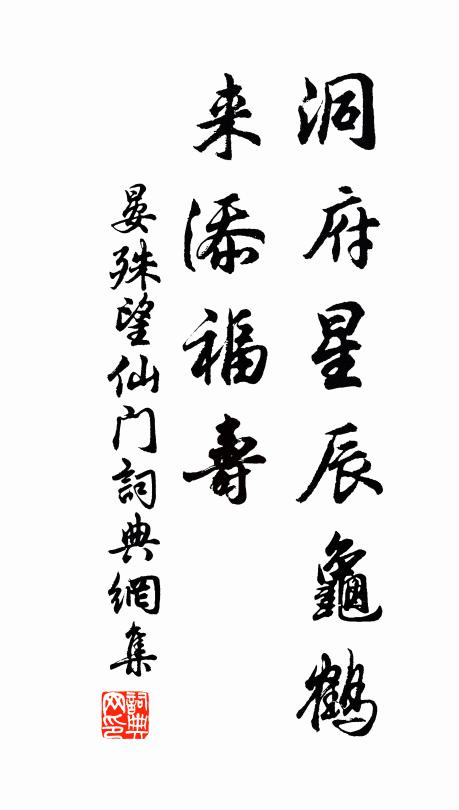 洞府星辰龜鶴
来添福壽
晏殊望仙门詞典網集
詞典网印